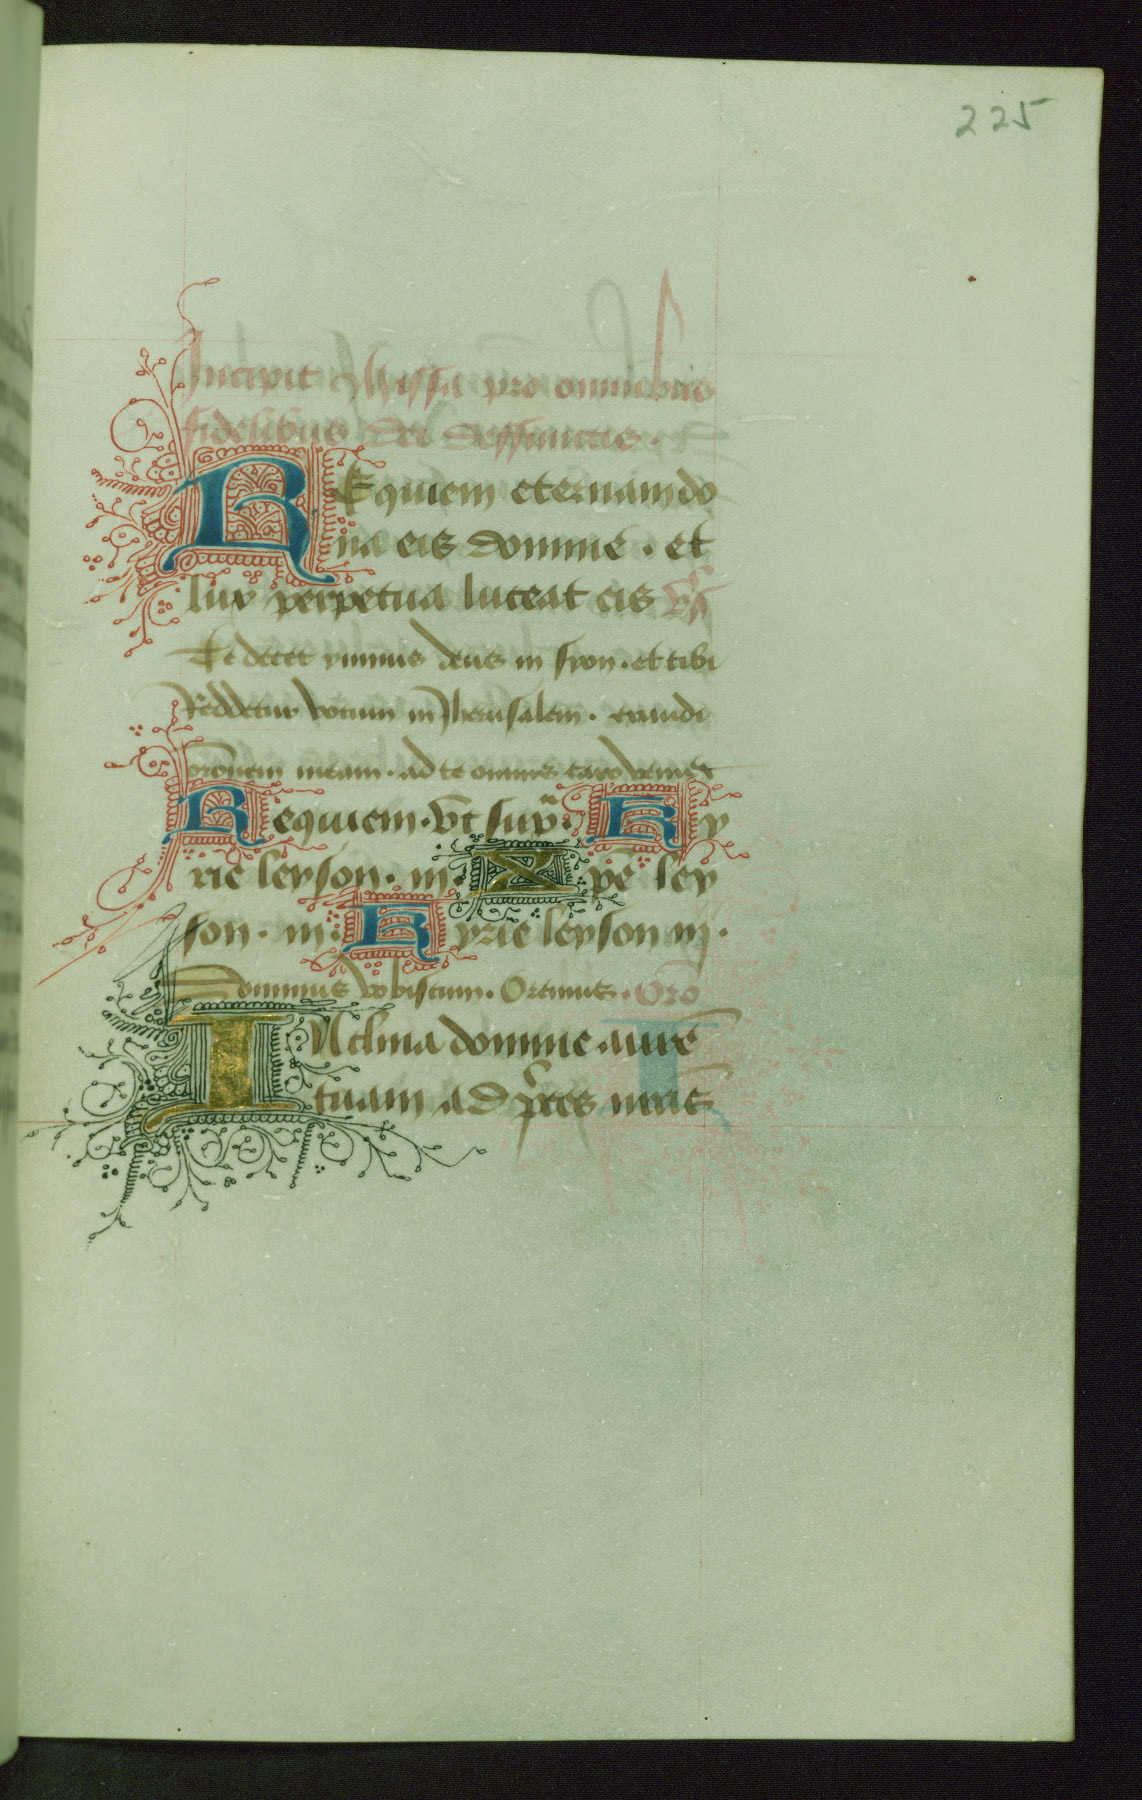 225
Incipit Missa pro omnibus
fidelibus dei deffunctis.
REquiem eternam do
na eis domine. et
lux perpetua luceat eis v̄s
Te decet ymnus deus in syon. et tibi
Reddetur votum in Jherusalem. exaudi
orōnem meam. ad te omnis caro veniet
Requiem. vt sup̄. Ky
rie leyson. iij. Xp̄e ley
son. iij. Kyrie leyson iij.
Dominus vobiscum. Oremus. Orō
INclina domine aurē
tuam ad p̄ces nr̄as